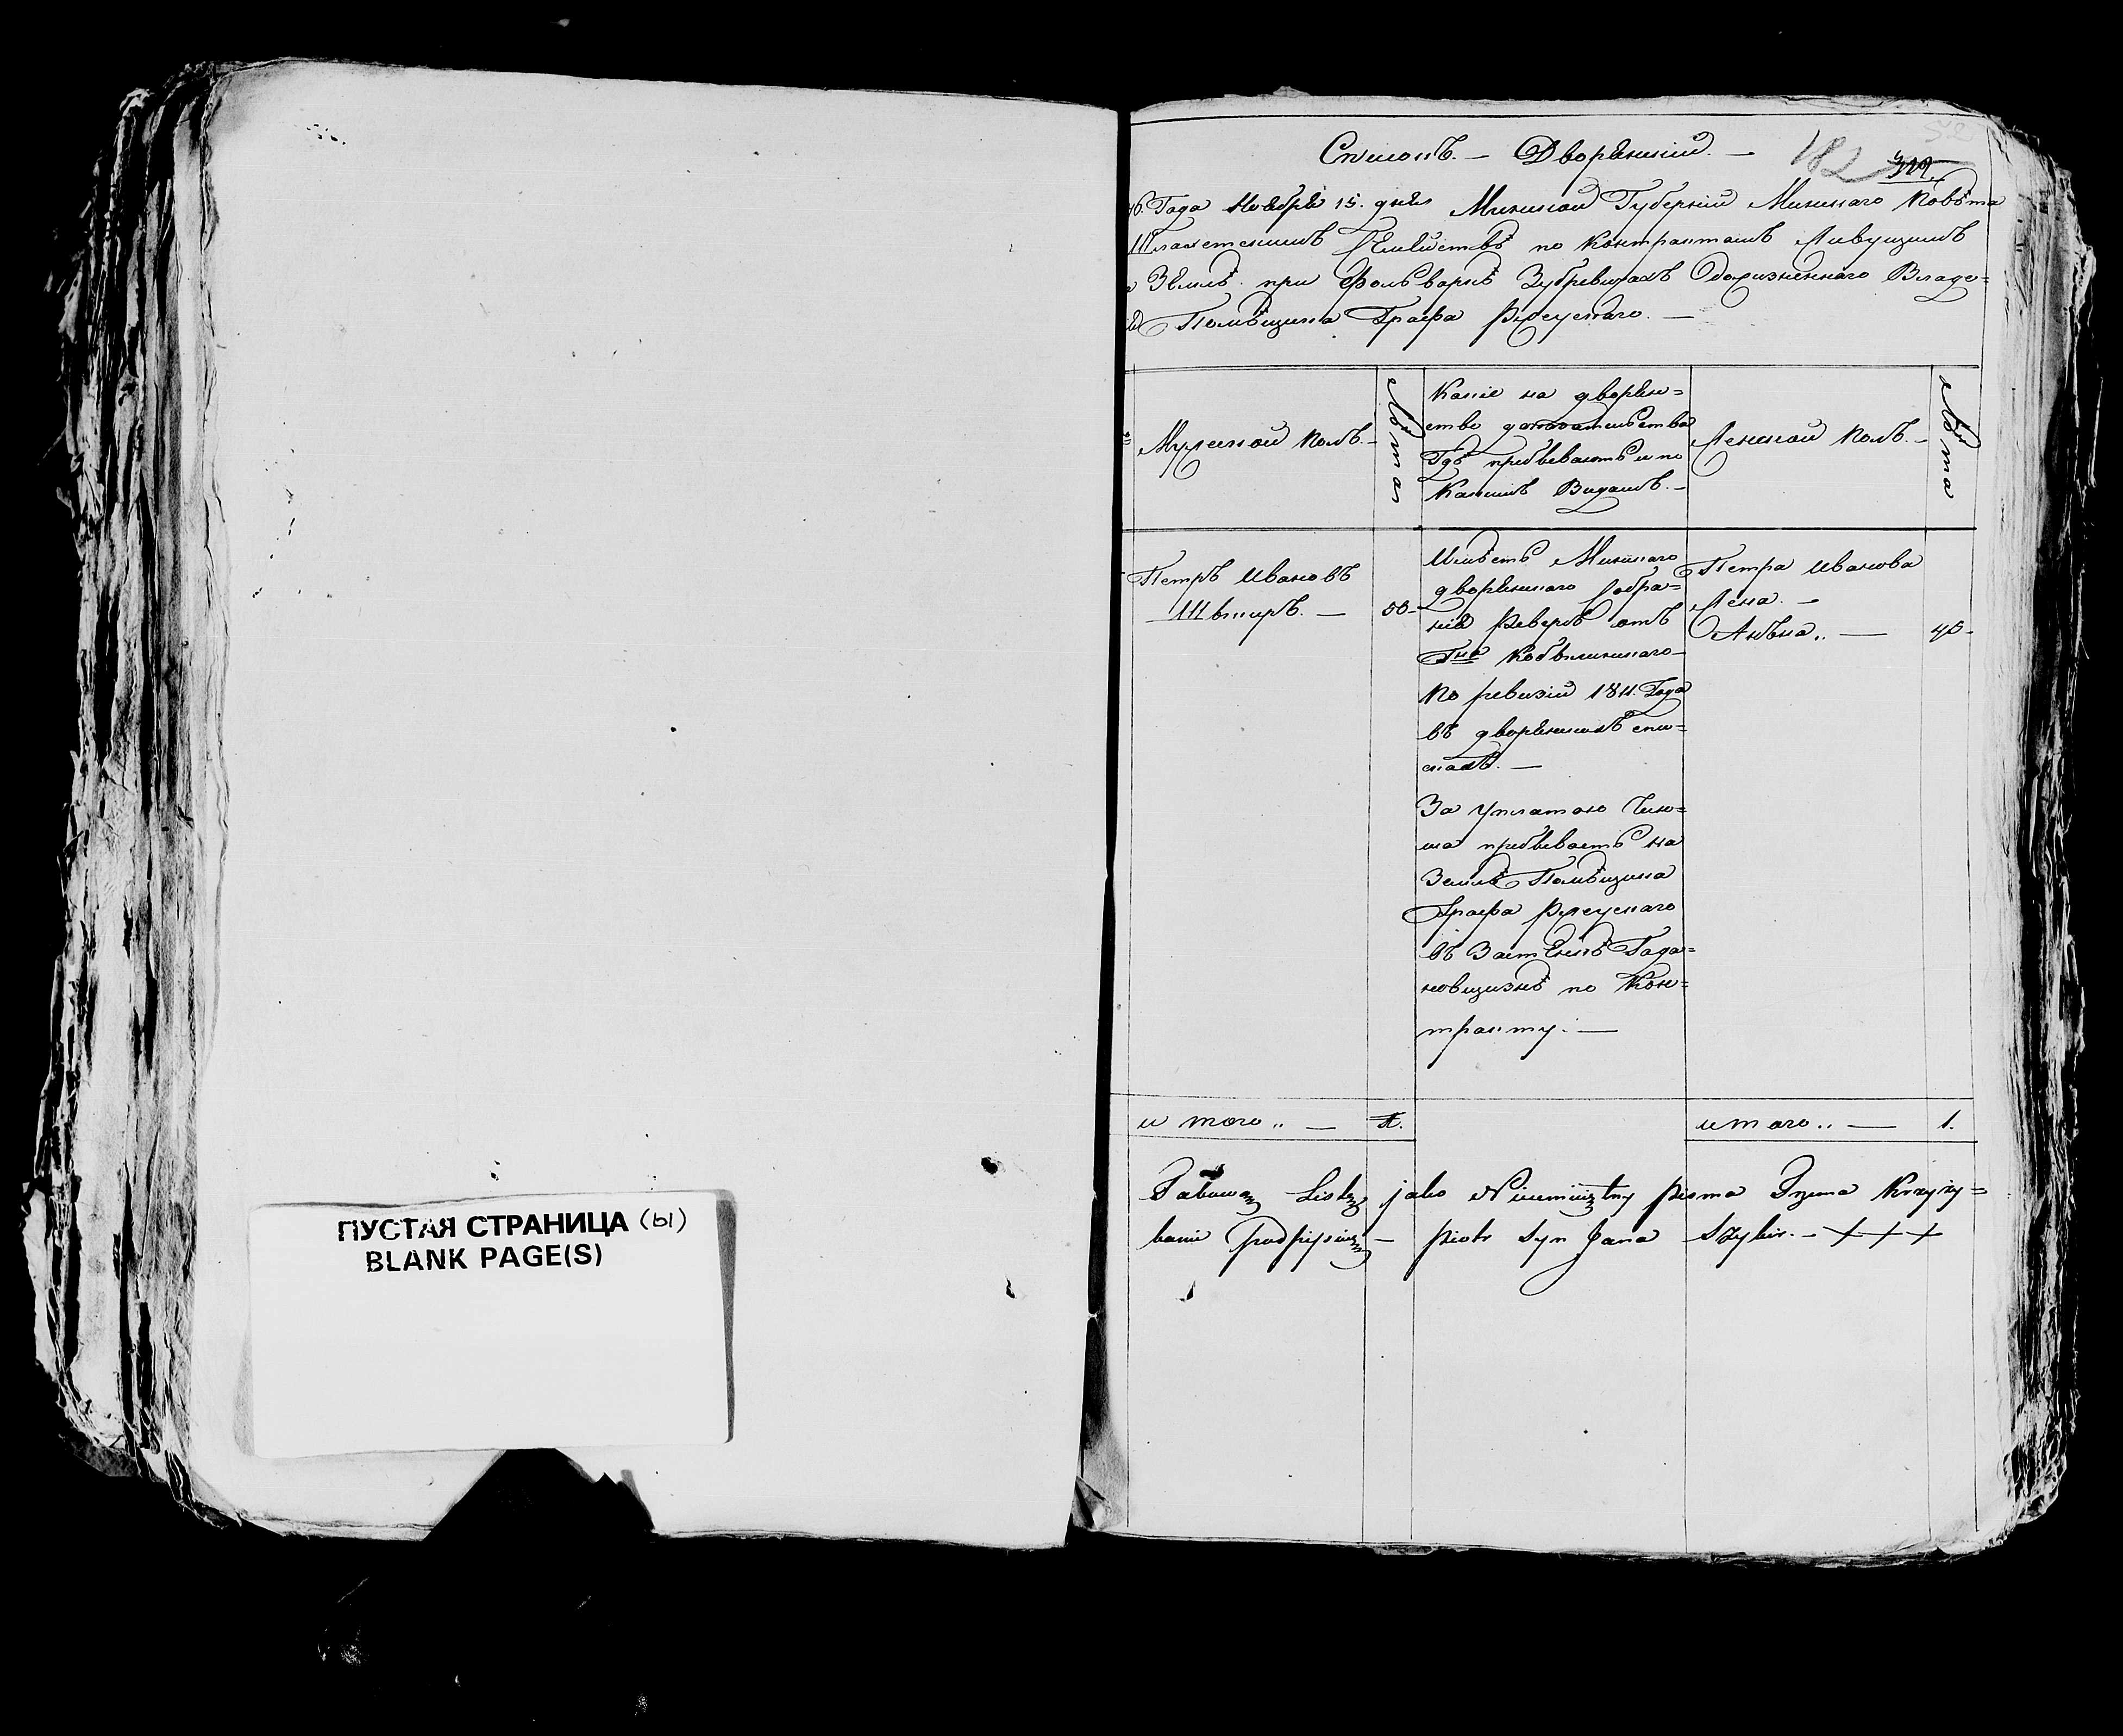 ПУСТАЯ СТРАНИЦА (ы)
BLANK PAGE(S)
Списокъ. — Дворянскій. —
182
Года Ноября 15. дня Минской Губерніи Минскаго Повѣта
Шляхетскимъ по Контрактамъ Живущимъ
Землѣ при Фольваркѣ Зубревичахъ Владе=
Помѣщика Графа Ржеускаго. —
Мужеской Полъ. —
Лѣта
Какіе на дворян=
ство доказательства
Гдѣ пребываютъ и по
Какимъ Видамъ. —
Женской Полъ. —
Лѣта
Петръ Ивановъ
—
50 —
Имѣетъ Минскаго
дворянскаго Собра=
нія Реверсъ отъ
Гна
По ревизіи 1811. Года
въ дворянскихъ спи=
скахъ. —
За уплатою Чин=
ша пребываетъ на
Землѣ Помѣщика
Графа Ржеускаго
въ Застѣнкѣ Гада=
новщизнѣ по Кон=
тракту. —
Петра Иванова
Жена. —
—
40 —
и того „ —
1.
и того „ —
1.
Takową Listę jako Nieumiejętny pisma Trzema Krzyży=
kami Podpisuję — Piotr Syn Jana — + + +